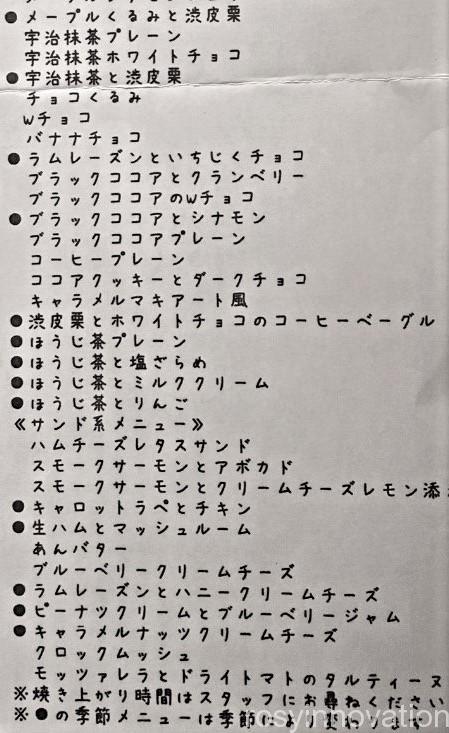 ●メープルくるみと渋皮栗
宇治抹茶プレーン
宇治抹茶ホワイトチョコ
●宇治抹茶と渋皮栗
チョコくるみ
Wチョコ
バナナチョコ
●ラムレーズンといちじくチョコ
ブラックココアとクランベリー
ブラックココアのWチョコ
●ブラックココアとシナモン
ブラックココアプレーン
コーヒープレーン
ココアクッキーとダークチョコ
キャラメルマキアート風
●渋皮栗とホワイトチョコのコーヒーベーグル
●ほうじ茶プレーン
●ほうじ茶と塩ざらめ
●ほうじ茶とミルククリーム
●ほうじ茶とりんご
《サンド系メニュー》
ハムチーズレタスサンド
スモークサーモンとアボカド
スモークサーモンとクリームチーズレモン添
●キャロットラペとチキン
●生ハムとマッシュルーム
あんバター
ブルーベリークリームチーズ
●ラムレーズンとハニークリームチーズ
●ピーナツクリームとブルーベリージャム
●キャラメルナッツクリームチーズ
クロックムッシュ
モッツァレラとドライトマトのタルティーヌ
※焼き上がり時間はスタッフにお尋ねください
※●の季節メニューは季節により変わります
rosyinnovation